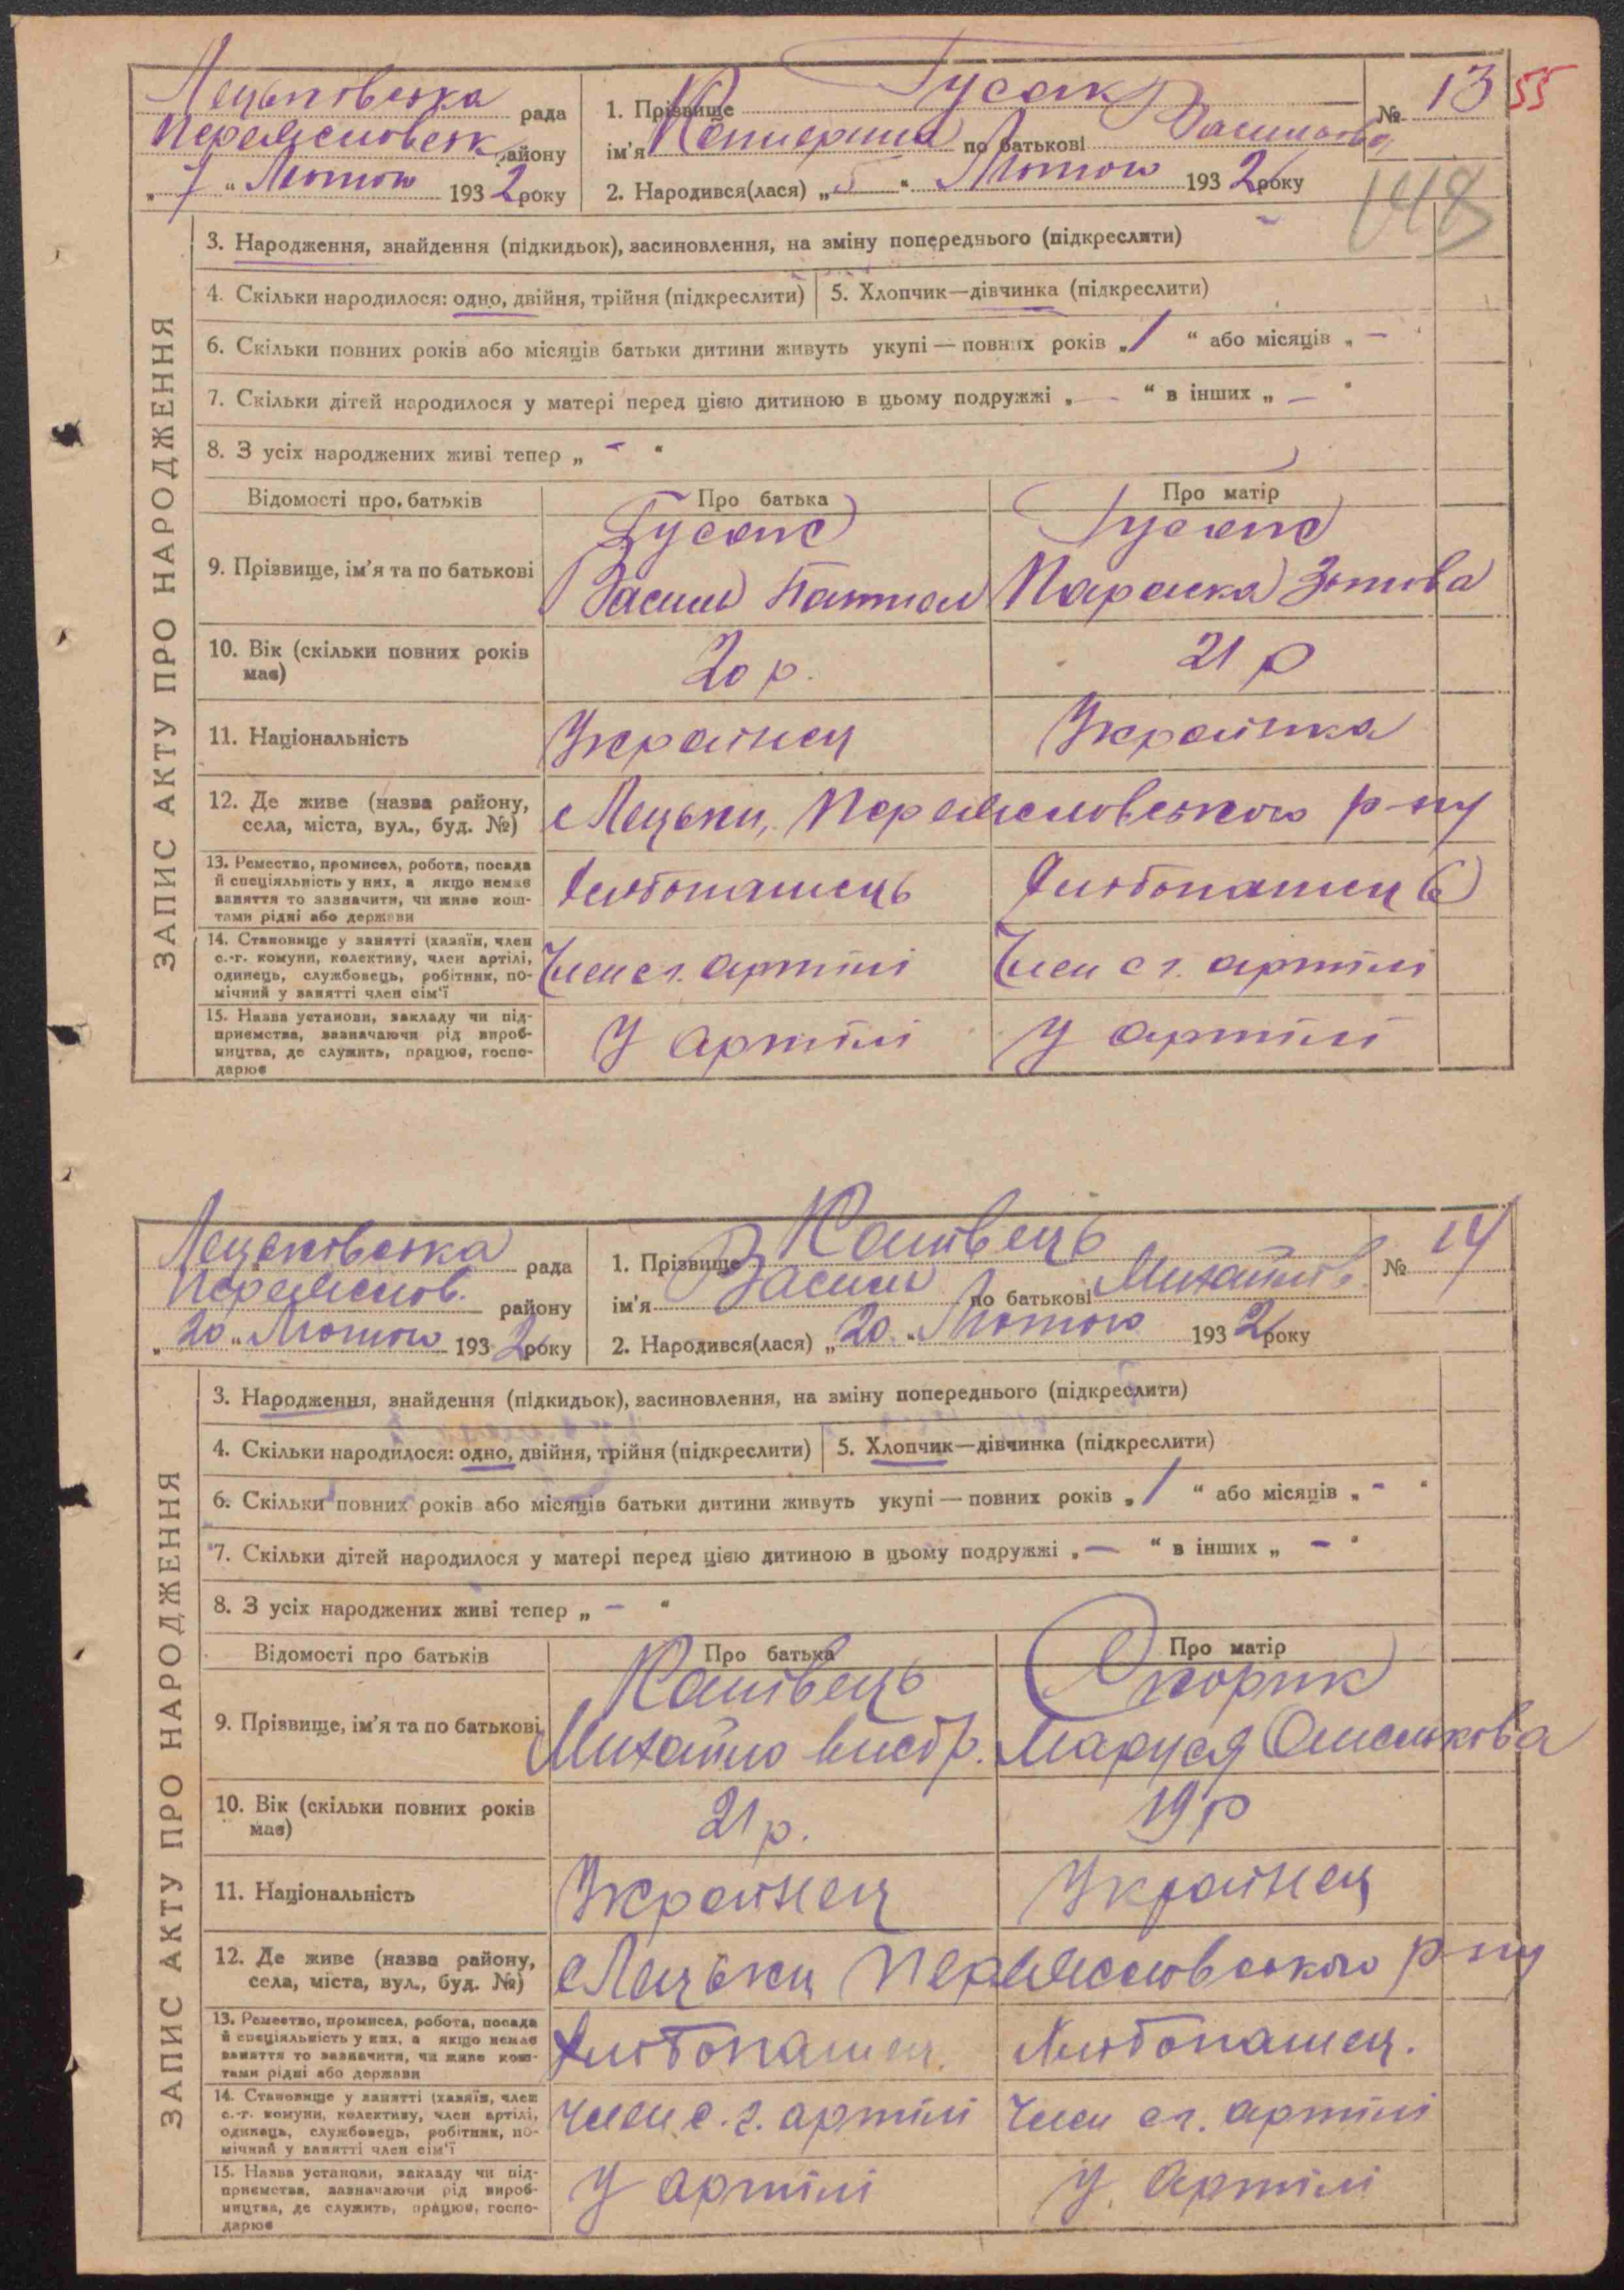 Лецьківська рада
Переяславськ району
„ 7 “ Лютого 1932 року
1. Прізвище Гусак
ім'я Катерина по батькові Васильова
2. Народився(лася) „ 5 “ Лютого 1932 року
№ 13
55
148
ЗАПИС АКТУ ПРО НАРОДЖЕННЯ
3. Народження, знайдення (підкидьок), засиновлення, на зміну попереднього (підкреслити)
4. Скільки народилося: одно, двійня, трійня (підкреслити)
5. Хлопчик—дівчинка (підкреслити)
6. Скільки повних років або місяців батьки дитини живуть укупі — повних років „ 1 “ або місяців „ - “
7. Скільки дітей народилося у матері перед цією дитиною в цьому подружжі „ — “ в інших „ — “
8. З усіх народжених живі тепер „ - “
Відомості про батьків
Про батька
Про матір
9. Прізвище, ім'я та по батькові
Гусак
Василь
Гусак
Параска
10. Вік (скільки повних років
має)
20 р.
21 р
11. Національність
Українец
Українка
12. Де живе (назва району,
села, міста, вул., буд. №)
с Лецьки, Переяславського р-ну
13. Ремество, промисел, робота, посада
й спеціяльність у них, а якщо немає
заняття то зазначити, чи живе кош-
тами рідні або держави
Хлібопашець
Хлібопашець
14. Становище у занятті (хазяїн, член
с.-г. комуни, колективу, член артілі,
одинець, службовець, робітник, по-
мічний у занятті член сім'ї
Член с г. артілі
Член с г. артілі
15. Назва установи, закладу чи під-
приємства, зазначаючи рід вироб-
ництва, де служить, працює, госпо-
дарює
У артілі
У артілі
Лецьківська рада
Переяслав. району
„ 20 “ Лютого 1932 року
1. Прізвище Кашівець
ім'я Василь по батькові Михайлів.
2. Народився(лася) „ 20. “ Лютого 1932 року
№ 14
ЗАПИС АКТУ ПРО НАРОДЖЕННЯ
3. Народження, знайдення (підкидьок), засиновлення, на зміну попереднього (підкреслити)
4. Скільки народилося: одно, двійня, трійня (підкреслити)
5. Хлопчик—дівчинка (підкреслити)
6. Скільки повних років або місяців батьки дитини живуть укупі — повних років „ 1 “ або місяців „ - “
7. Скільки дітей народилося у матері перед цією дитиною в цьому подружжі „ — “ в інших „ - “
8. З усіх народжених живі тепер „ — “
Відомості про батьків
Про батька
Про матір
9. Прізвище, ім'я та по батькові
Кашівець
Михайло
Скорик
Маруся Омелькова
10. Вік (скільки повних років
має)
21 р.
19 р
11. Національність
Українец
Українец
12. Де живе (назва району,
села, міста, вул., буд. №)
с Лецьки Переяславського р-ну
13. Ремество, промисел, робота, посада
й спеціяльність у них, а якщо немає
заняття то зазначити, чи живе кош-
тами рідні або держави
Хлібопашец.
Хлібопашец.
14. Становище у занятті (хазяїн, член
с.-г. комуни, колективу, член артілі,
одинець, службовець, робітник, по-
мічний у занятті член сім'ї
Член с. г. артілі
Член с г. артілі
15. Назва установи, закладу чи під-
приємства, зазначаючи рід вироб-
ництва, де служить, працює, госпо-
дарює
У артілі
У артілі